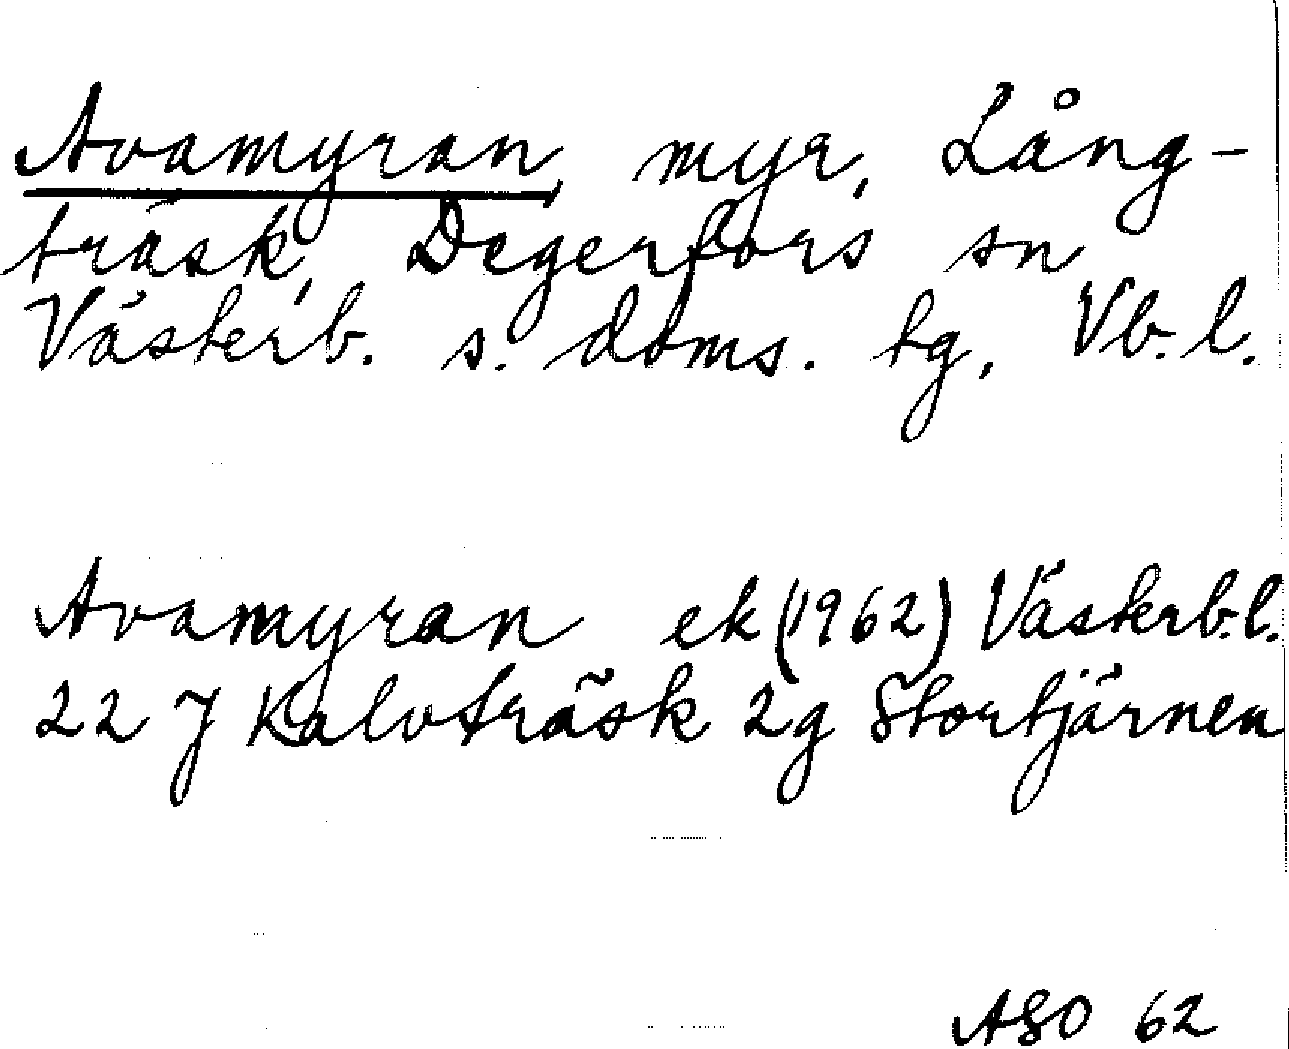 Avamyran, myr, Lång-
träsk, Degerfors sn
Västerb. s. doms. tg, Vb. l.
Avamyran ek (1962) Västerb. l.
22 J Kalvträsk 2g Stortjärnen
ASO 62